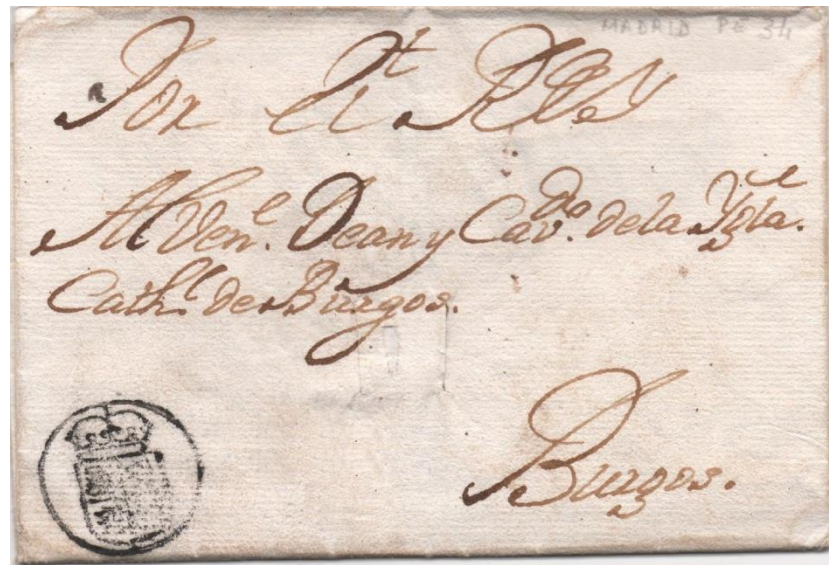 MADRID PE 34
Por El Rey
Al Ven.e Dean y Cav.do de la Ygla.
Cath.l de Burgos.
Burgos.